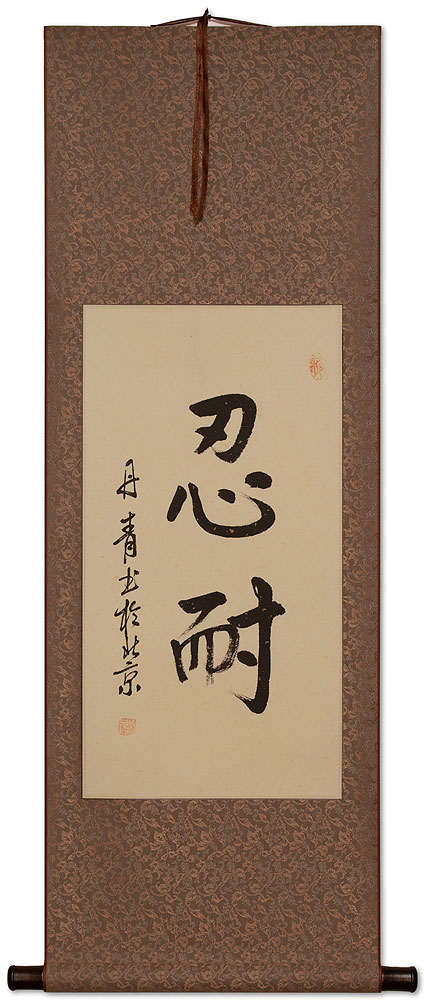 忍耐
丹青书於北京